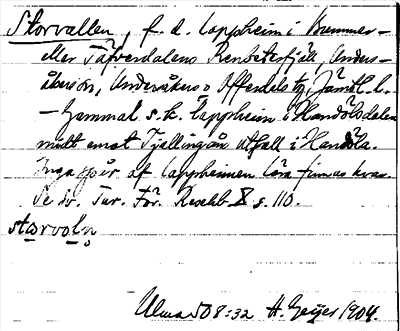 Storvallen, f. d. lappheim i Bummer-
eller Täfverdalens Renbetesfjäll, Unders-
åkers sn, Undersåkers o Offerdals tg, Jämtl. l.
— Gammal s. k. lappheim i Handölsdalen
midt emot Tjallingån utfall i Handöla.
Inga spår af lappheimen lära finnas kvar.
Se Sv. Tur. För. Resehb. X s. 110.
storvoln
Ulma 508:32 H. Geijer 1904.